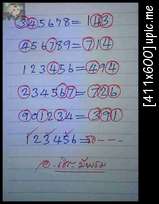 345678=143
456789=714
123456=494
234567=726
901234=391
123456=50---
[411x600] upic.me